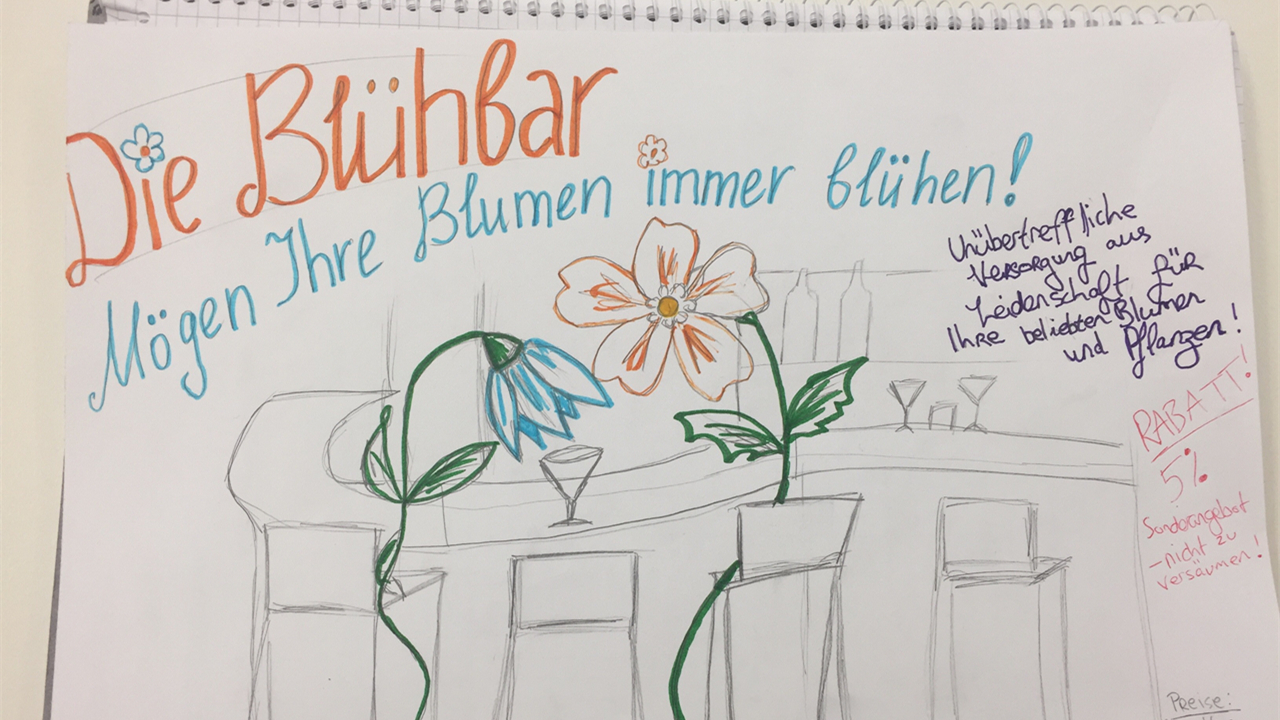 Die Blühbar
Mögen Ihre Blumen immer blühen!
Unübertreffliche
Versorgung aus
Leidenschaft für
Ihre beliebten Blumen
und Pflanzen!
RABATT!
5%
Sonderangebot
-nicht zu
versäumen!
Preise: